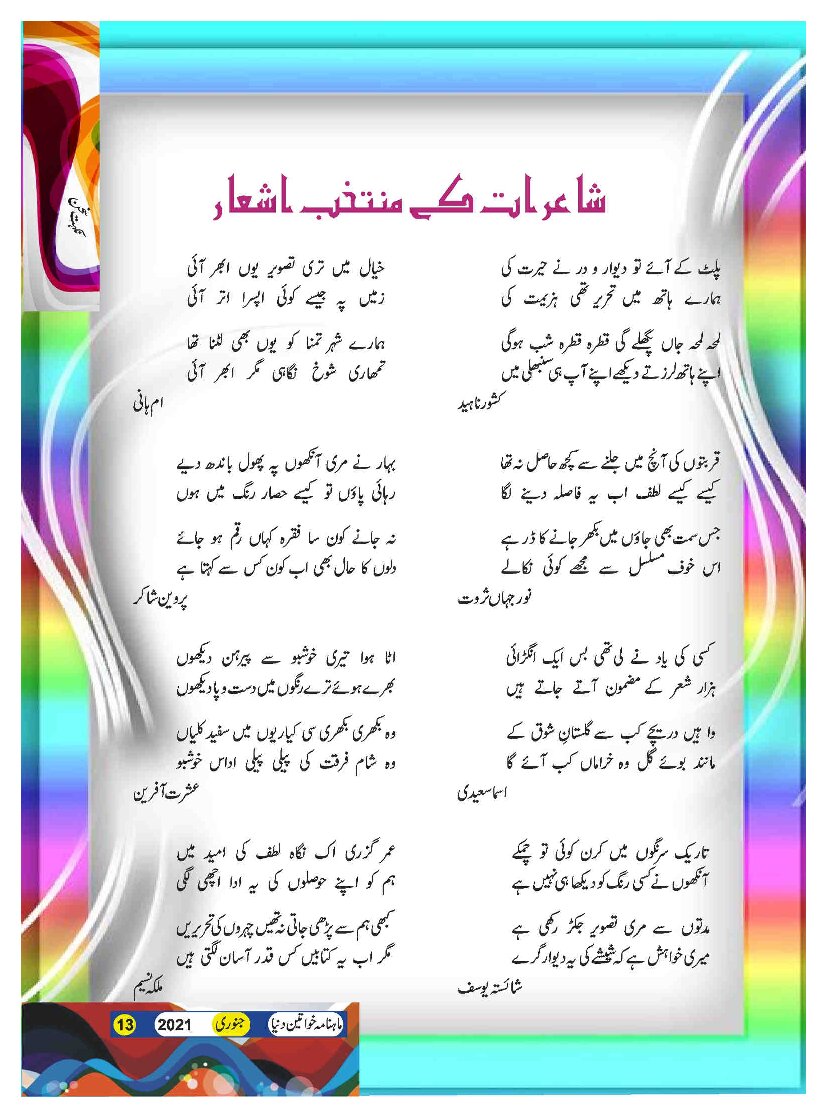 نگہت سخن
شاعرات کے منتخب اشعار
پلٹ کے آئے تو دیوار و در نے حیرت کی
ہمارے ہاتھ میں تحریر تھی ہزیمت کی
لمحہ لمحہ جاں پگھلے گی قطرہ قطرہ شب ہوگی
اپنے ہاتھ لرزتے دیکھے اپنے آپ ہی سنبھلی میں
کشور ناہید
قربتوں کی آنچ میں جلنے سے کچھ حاصل نہ تھا
کیسے کیسے لطف اب یہ فاصلہ دینے لگا
جس سمت بھی جاؤں میں بکھر جانے کا ڈر ہے
اس خوف مسلسل سے مجھے کوئی نکالے
نور جہاں ثروت
کسی کی یاد نے لی تھی بس ایک انگڑائی
ہزار شعر کے مضمون آتے جاتے ہیں
وا ہیں دریچے کب سے گلستانِ شوق کے
مانند بوئے گل وہ خراماں کب آئے گا
اسما سعیدی
تاریک سرنگوں میں کرن کوئی تو چمکے
آنکھوں نے کسی رنگ کو دیکھا ہی نہیں ہے
مدتوں سے مری تصویر جکڑ رکھی ہے
میری خواہش ہے کہ شیشے کی یہ دیوار گرے
شائستہ یوسف
خیال میں تری تصویر یوں ابھر آئی
زمیں پہ جیسے کوئی اپسرا اتر آئی
ہمارے شہر تمنا کو یوں بھی لٹنا تھا
تمھاری شوخ نگاہی مگر ابھر آئی
ام ہانی
بہار نے مری آنکھوں پہ پھول باندھ دیے
رہائی پاؤں تو کیسے حصار رنگ میں ہوں
نہ جانے کون سا فقرہ کہاں رقم ہو جائے
دلوں کا حال بھی اب کون کس سے کہتا ہے
پروین شاکر
اٹا ہوا تیری خوشبو سے پیرہن دیکھوں
بھرے ہوئے ترے رنگوں میں دست و پا دیکھوں
وہ بکھری بکھری سی کیاریوں میں سفید کلیاں
وہ شام فرقت کی پیلی پیلی اداس خوشبو
عشرت آفرین
عمر گزری اک نگاہ لطف کی امید میں
ہم کو اپنے حوصلوں کی یہ ادا اچھی لگی
کبھی ہم سے پڑھی جاتی نہ تھیں چہروں کی تحریریں
مگر اب یہ کتابیں کس قدر آسان لگتی ہیں
ملکہ نسیم
ماہنامہ خواتین دنیا جنوری 2021 13